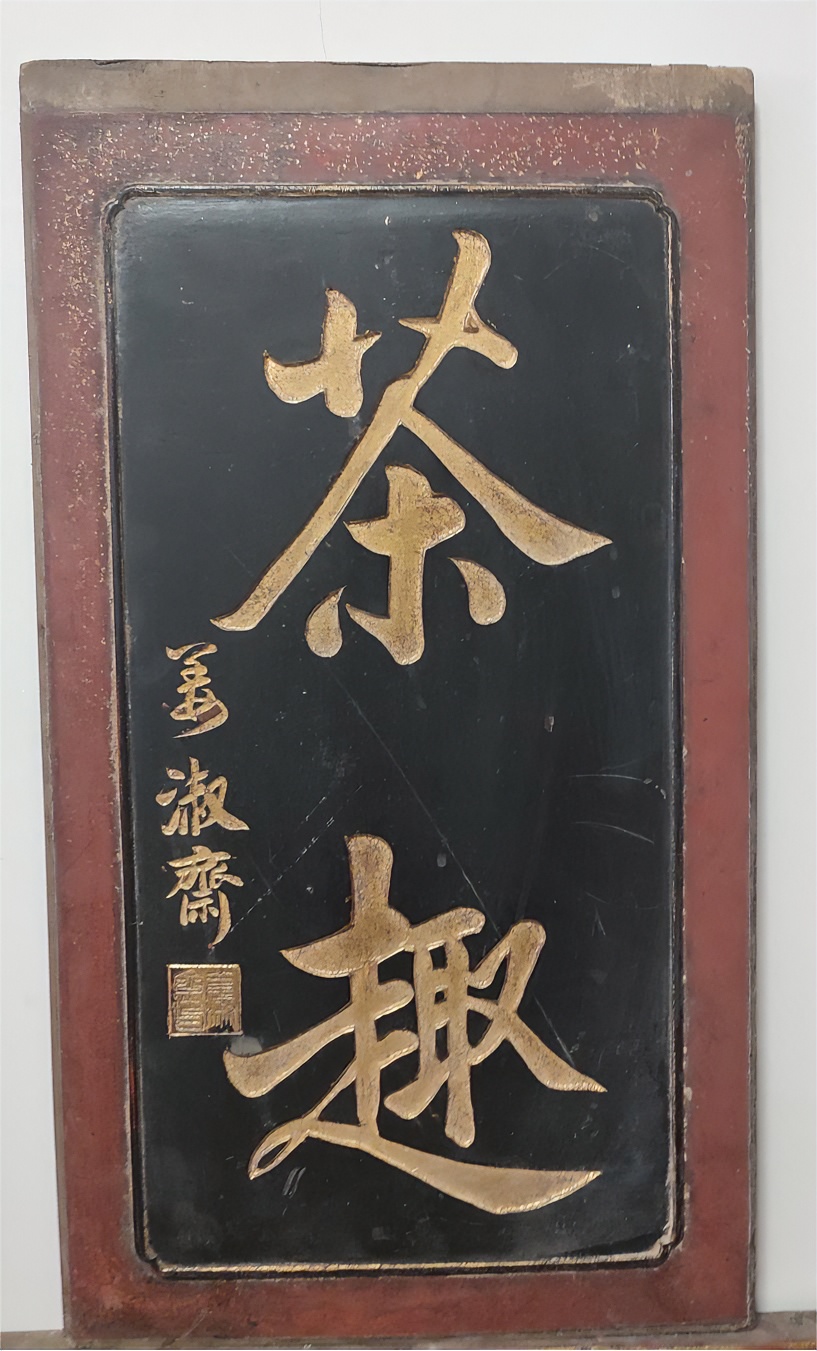 茶趣
姜淑齋